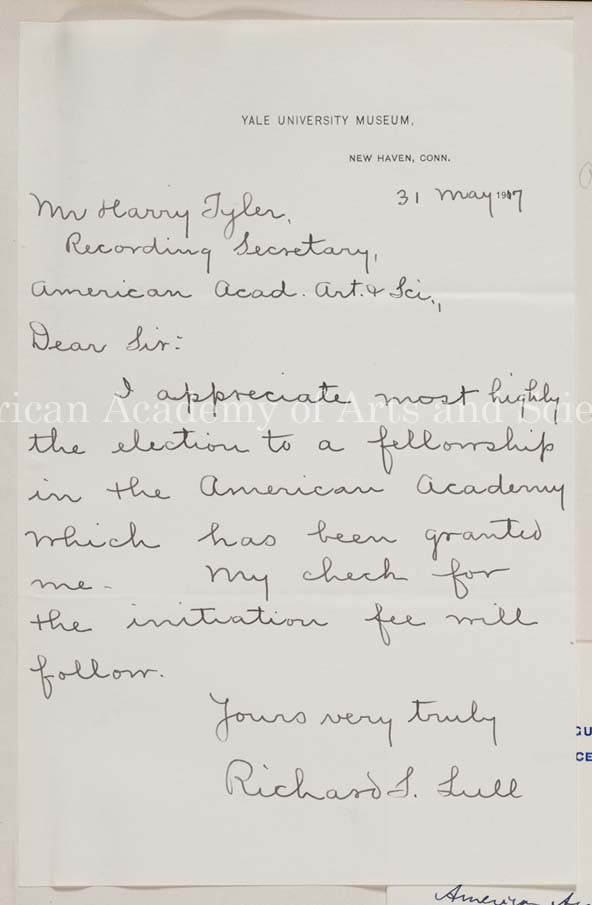 YALE UNIVERSITY MUSEUM,
NEW HAVEN, CONN.
31 May 1917
Mr Harry Tyler,
Recording Secretary,
American Acad. Art. & Sci.,
Dear Sir:
I appreciate most highly
rican Academy of Arts and Scie
the election to a fellowship
in the American Academy
which has been granted
me. My check for
the initiation fee will
follow.
Yours very truly
Richard S. Lull
GU
CE
American